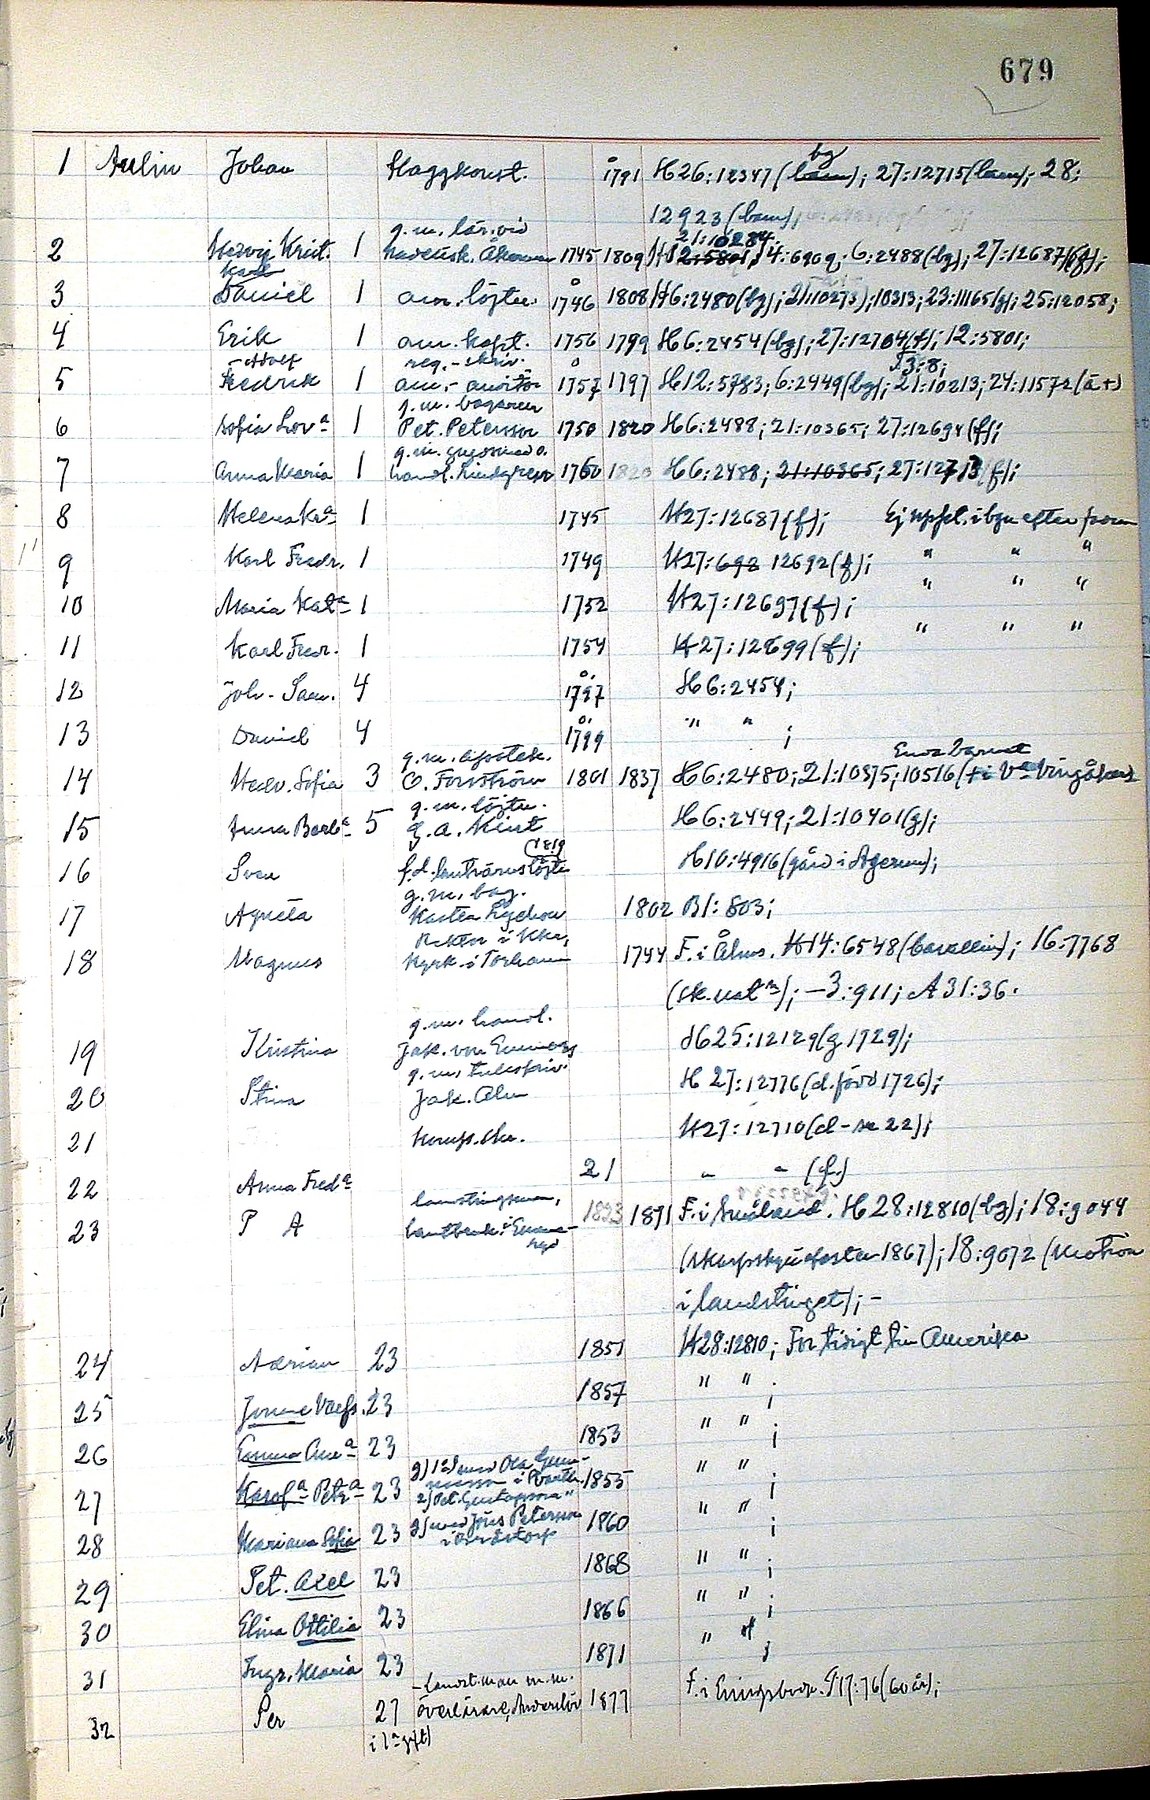 679
1 Aulin Johan Flaggkonst. 1791 H26:12347 (barn) bg; 27:12715 (barn); 28;
12923 (barn);
g. m. lär. vid
21:10284.
2 Hedvig Krist. 1 navelsk. Åkerman 1745 1809 H12:5801; 4:690q; 6:2488 (bg); 27:12687 (f);
Karl
3 Daniel 1 am. löjtn. 1746 1808 H6:2480 (bg); 21:10273; 10313; 23:11165 (g); 25:12058;
4 Erik 1 am. kapt. 1756 1799 H6:2454 (bg); 27:12704 (f); 12:5801;
-Adolf reg.-skriv. 13:8;
5 Fredrik 1 am.-auditör 1757 1797 H12:5783; 6:2449 (bg); 21:10213; 24:11572 (ä +)
g. m. bagaren
6 Sofia Lov:a 1 Pet. Petersson 1750 1820 H6:2488; 21:10365; 27:12694 (f);
g. m.
7 Anna Maria 1 handl. Lindgren 1760 1820 H6:2488; 21:10365; 27:12713 (f);
8 Helena Kr:a 1 1745 H27:12687 (f); Ej uppt. i bgn efter faren
9 Karl Fredr. 1 1749 H27:698 12692 (f); " " "
10 Maria Kat:a 1 1752 H27:12697 (f); " " "
11 Karl Fredr. 1 1754 H27:12699 (f); " " "
12 Joh. Sam. 4 1797 H6:2454;
13 Daniel 4 1799 " " ;
g. m. apotek. Enda barnet
14 Hedv. Sofia 3 O. Forsström 1801 1837 H6:2480; 21:10375; 10516 (+ i V:a Vingåker)
g. m. löjtn.
15 Anna Barb:a 5 G. A. Kint H6:2449; 21:10401 (g);
(1819
16 Sven f. d. löjtn H10:4916 (gård i Agerum);
g. m. bag.
17 Agneta Lychou 1802 B1:803;
Rektor i Kkr,
18 Magnus Kyrk. i Torhamn 1744 F. i Älms. H14:6548 (Cavallin); 16:7768
(sk. nat:n); -3:911; A31:36.
g. m. handl.
19 Kristina Jak. von Emmers H25:12129 (g 1729);
g. m. tullskriv.
20 Stina Jak. Alm H27:12776 (d. född 1726);
21 H27:12710 (d - se 22);
22 Anna Fred:a 21 " " (f.)
landstingsman,
23 P A lantbruk. i Emme- 1823 1871 F. i Småland. H28:12810 (bg); 18:9044
ryd
(1867); 18:9072 (motion
i landstinget); -
24 Adrian 23 1851 H28:12810; For tidigt till Amerika
25 Jonne 23 1857 " " ;
26 Emma Am:a 23 1853 " " ;
27 Karol:a Petr:a 23 1855 " " ;
2) Pet. Gustafsson "
28 Mariana Sofia 23 g) med Jöns Petersson 1860 " " ;
29 Pet. Axel 23 1868 " " ;
30 Elina Ottilia 23 1866 " " ;
31 Ingr. Maria 23 1871 " " ;
- landst.man m. m.
32 Per 27 överlärare, Anderslöv 1877 F. i Ringsbrog. G17:76 (60 år);
i 1:a gift)